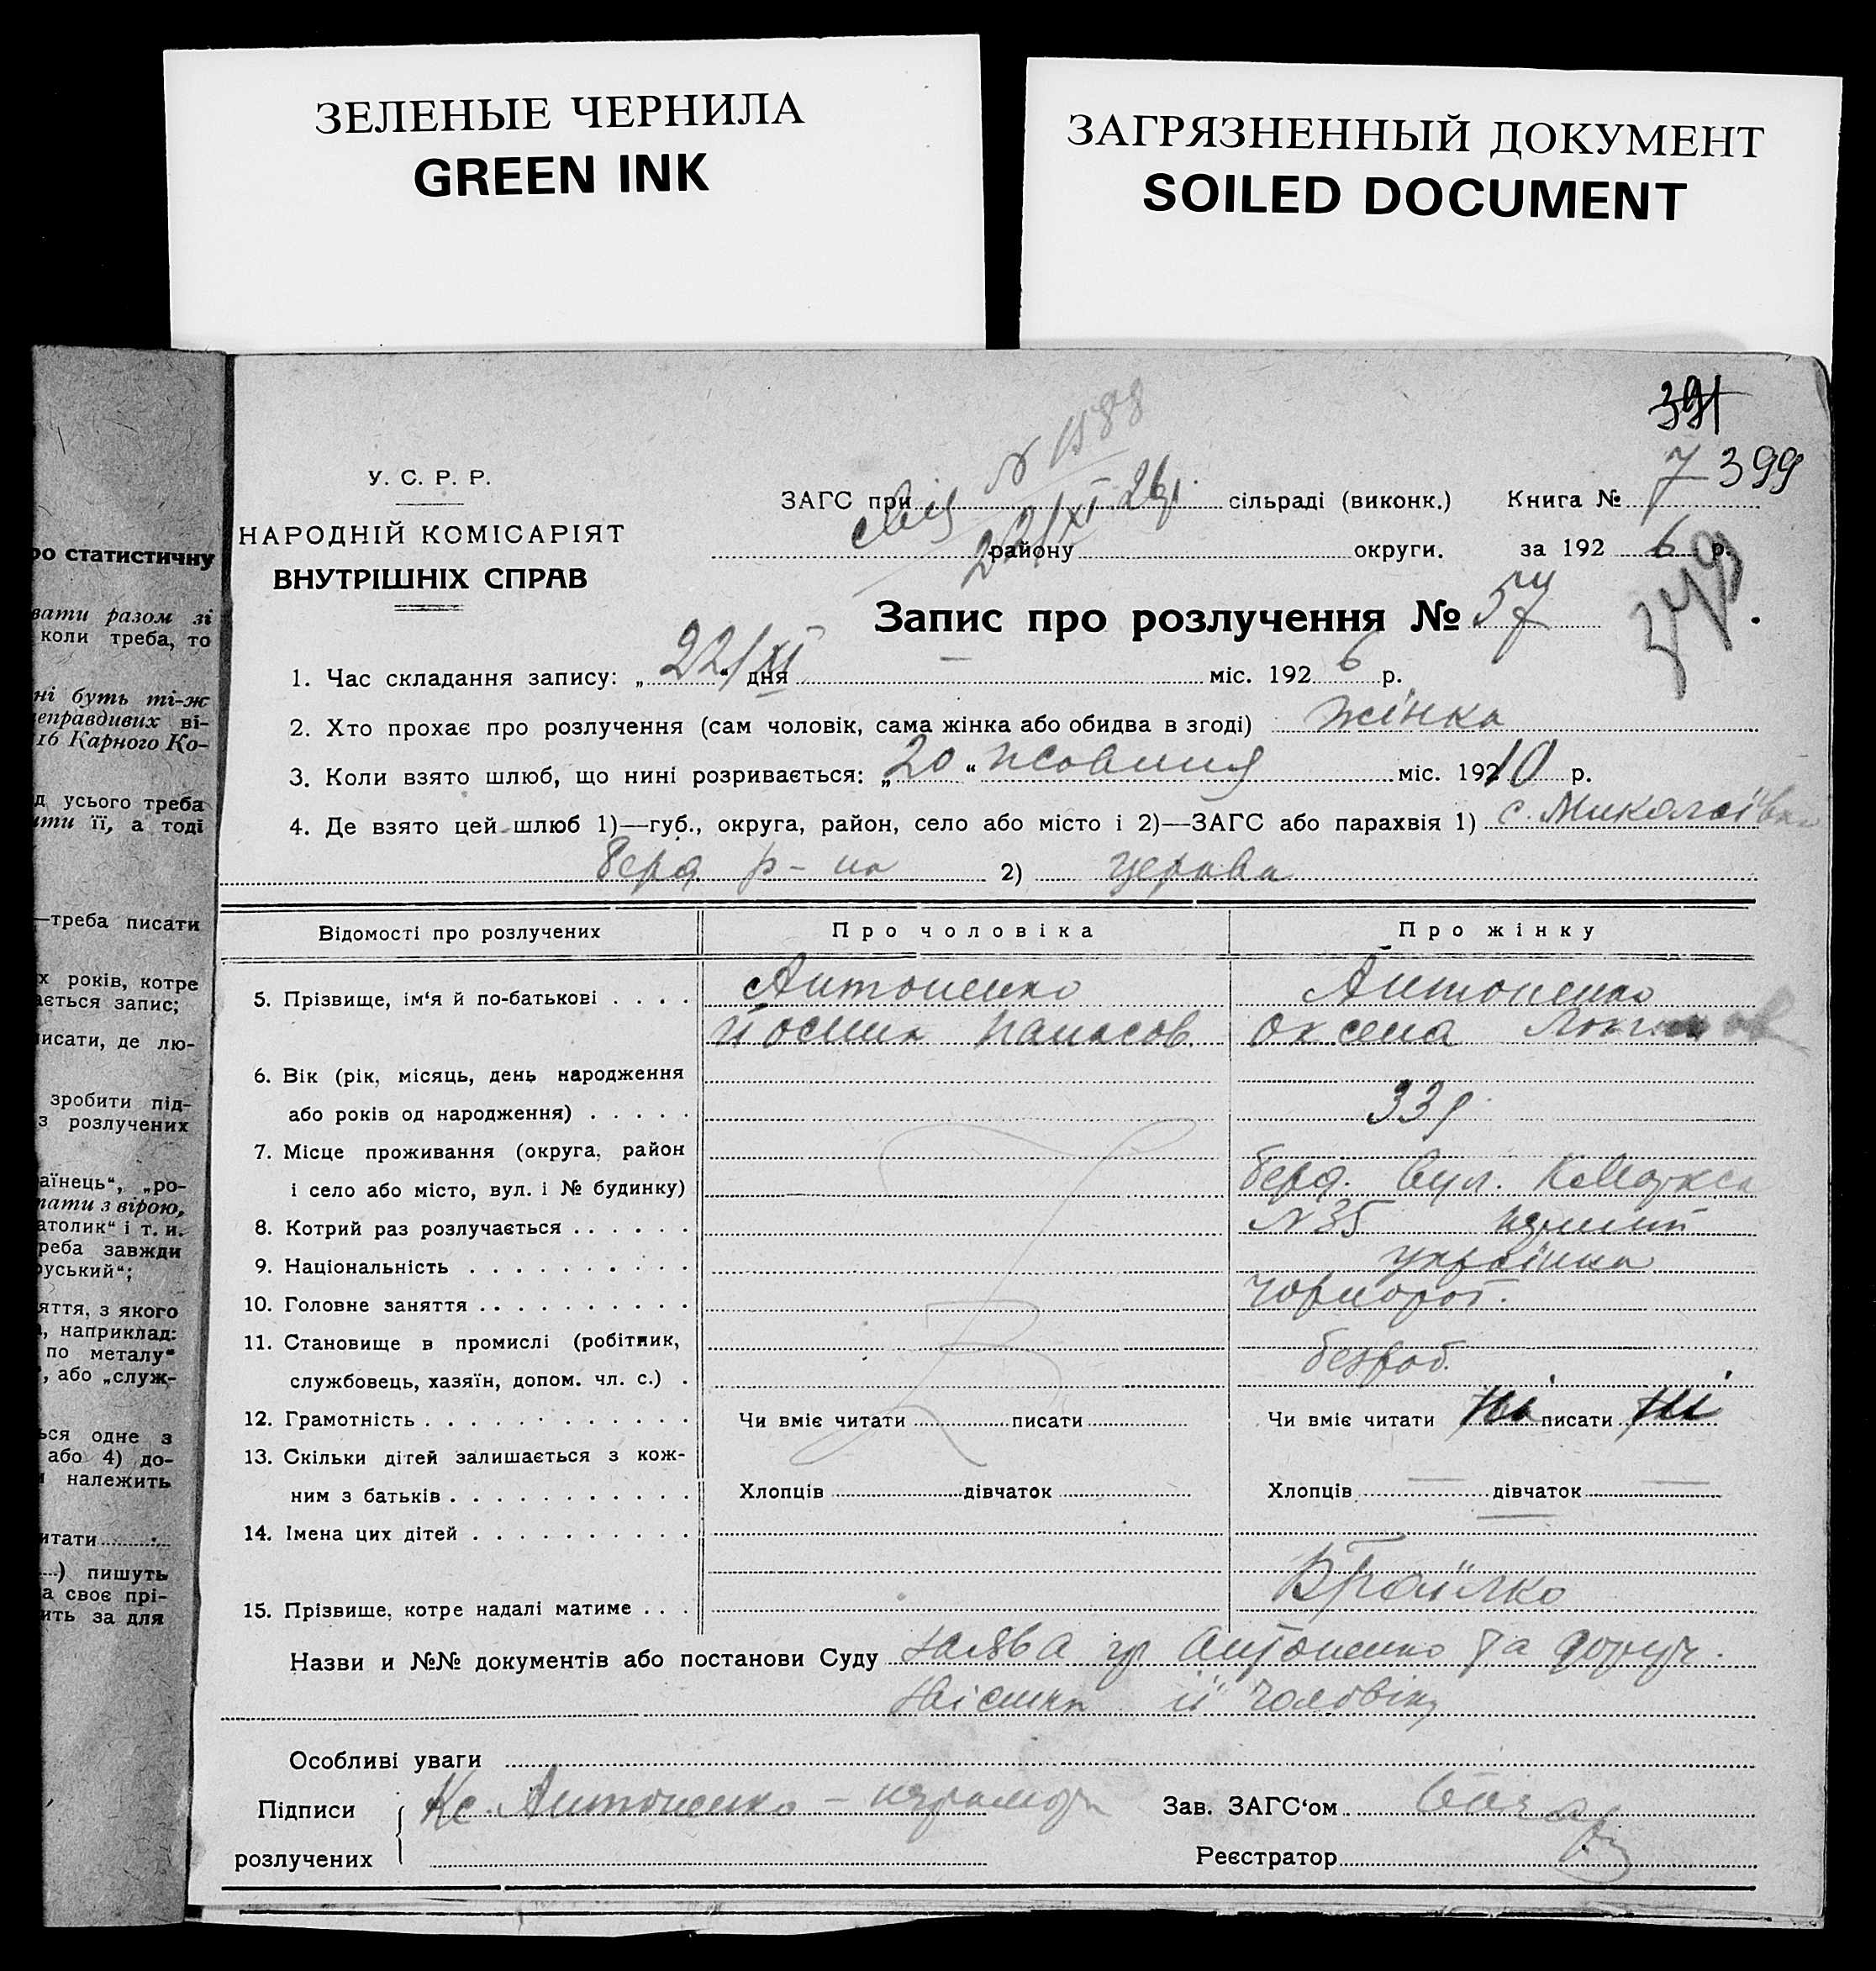 ЗЕЛЕНЫЕ ЧЕРНИЛА
GREEN INK
ЗАГРЯЗНЕННЫЙ ДОКУМЕНТ
SOILED DOCUMENT
ро статистичну
вати разом зі
коли треба, то
ні буть ті-ж
неправдивих ві-
16 Карного Ко-
д усього треба
ити її, а тоді
—треба писати
х років, котре
ається запис;
исати, де лю-
зробити під-
з розлучених
аїнець“, „ро-
тати з вірою,
атолик“ і т. и.
реба завжди
руський“;
яття, з якого
, наприклад:
по металу“
, або „служ-
ься одне з
або 4) до-
належить
итати
) пишуть
а своє прі-
ить за для
391
7 399
У. С. Р. Р.
НАРОДНІЙ КОМІСАРІЯТ
ВНУТРІШНІХ СПРАВ
N 1588
22/XI 26р.
ЗАГС при сільраді (виконк.) Книга №
району округи. за 192 6 р.
Запис про розлучення № 57
1. Час складання запису: „ 22/XI “ дня — міс. 192 6 р.
2. Хто прохає про розлучення (сам чоловік, сама жінка або обидва в згоді) жінка
3. Коли взято шлюб, що нині розривається: „ 20 “ жовтня міс. 1910 р.
4. Де взято цей шлюб 1)—губ., округа, район, село або місто і 2)—ЗАГС або парахвія 1) с. Миколаївка
Берд р-на 2) церква
Відомості про розлучених Про чоловіка Про жінку
5. Прізвище, ім‘я й по-батькові . . . . Антоненко Антоненко
Йосип Панасов. Оксена
6. Вік (рік, місяць, день народження
або років од народження) . . . . . 33 р.
7. Місце проживання (округа, район
і село або місто, вул. і № будинку) Берд. вул. К Маркса
N 35
8. Котрий раз розлучається . . . . . .
9. Національність . . . . . . . . . . українка
10. Головне заняття . . . . . . . . . . чорнороб.
11. Становище в промислі (робітник,
службовець, хазяїн, допом. чл. с.) . безроб.
12. Грамотність . . . . . . . . . . . . Чи вміє читати писати Чи вміє читати Ні писати Ні
13. Скільки дітей залишається з кож-
ним з батьків . . . . . . . . . . . Хлопців дівчаток Хлопців — дівчаток —
14. Імена цих дітей . . . . . . . . . . —
15. Прізвище, котре надалі матиме . . . Браїлко
Назви и №№ документів або постанови Суду Заява гр Антоненко та
її чоловіку
Особливі уваги
Підписи Кс. Антоненко – неграмотн
розлучених
Зав. ЗАГС‘ом
Реєстратор